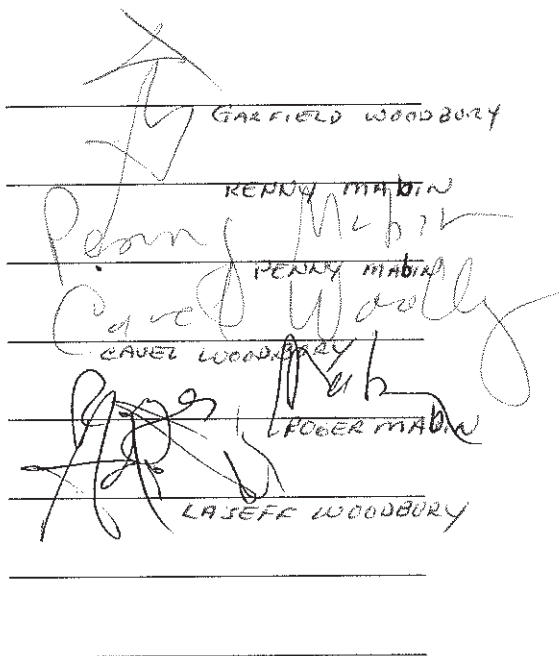 GARFIELD WOODBURY
KENNY MABIN
Penny Mabin
PENNY MABIN
Cavel Woodbury
CAVEL WOODBURY
ROGER MABIN
LASEFF WOODBURY